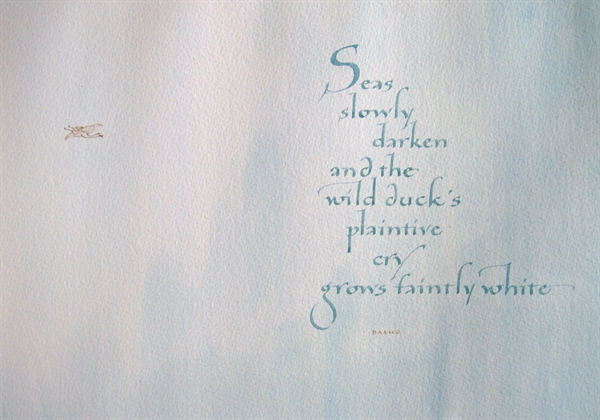 Seas
slowly
darken
and the
wild duck's
plaintive
cry
grows faintly white
BASHO